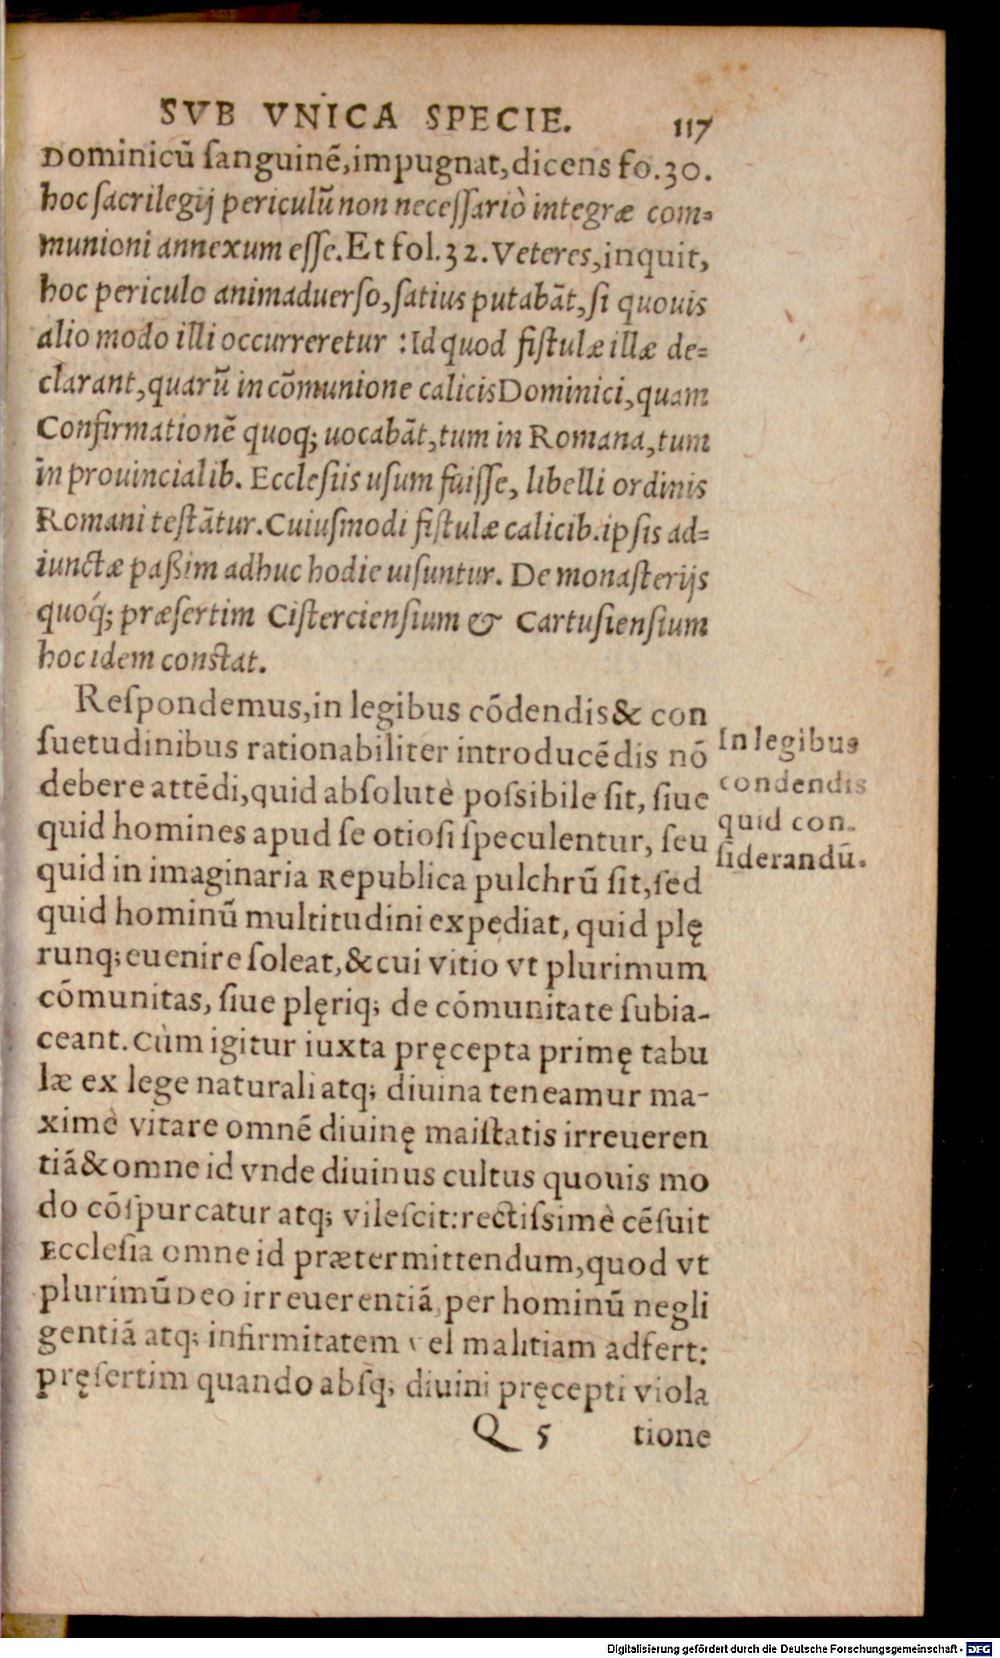 SVB VNICA SPECIE. 117
Dominicū ſanguinē, impugnat, dicens fo. 30.
hoc ſacrilegij periculū non neceſſariò integræ com=
munioni annexum eſſe. Et fol. 32. Veteres, inquit,
hoc periculo animaduerſo, ſatius putabāt, ſi quouis
alio modo illi occurreretur : Id quod fiſtulæ illæ de=
clarant, quarū in cōmunione calicis Dominici, quam
Confirmationē quoq; uocabāt, tum in Romana, tum
in prouincialib. Eccleſiis uſum fuiſſe, libelli ordinis
Romani teſtātur. Cuiuſmodi fiſtulæ calicib. ipſis ad=
iunctæ paßim adhuc hodie uiſuntur. De monaſterijs
quoq́; præſertim Ciſtercienſium & Cartuſienſium
hoc idem conſtat.
Reſpondemus, in legibus cōdendis & con
ſuetudinibus rationabiliter introducēdis nō
debere attēdi, quid abſolutè poſsibile ſit, ſiue
quid homines apud ſe otioſi ſpeculentur, ſeu
quid in imaginaria Republica pulchrū ſit, ſed
quid hominū multitudini expediat, quid plę
runq; euenire ſoleat, & cui vitio vt plurimum
cōmunitas, ſiue plęriq; de cōmunitate ſubia-
ceant. Cùm igitur iuxta pręcepta primę tabu
læ ex lege naturali atq; diuina teneamur ma-
ximè vitare omnē diuinę maiſtatis irreueren
tiā & omne id vnde diuinus cultus quouis mo
do cōſpurcatur atq; vileſcit: rectiſsimè cēſuit
Eccleſia omne id prætermittendum, quod vt
plurimū Deo irreuerentiā, per hominū negli
gentiā atq; infirmitatem vel malitiam adfert:
pręſertim quando abſq; diuini pręcepti viola
Q 5 tione
In legibus
condendis
quid con-
ſiderandū.
Digitalisierung gefördert durch die Deutsche Forschungsgemeinschaft - DFG